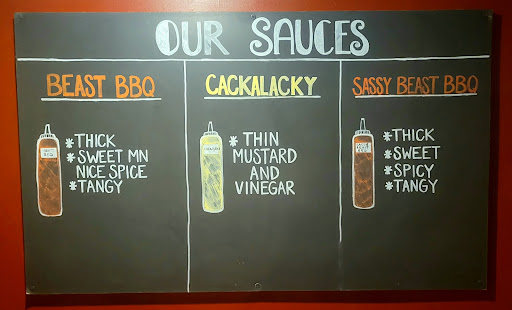 OUR SAUCES
BEAST BBQ
*THICK
*SWEET MN
NICE SPICE
*TANGY
CACKALACKY
* THIN
MUSTARD
AND
VINEGAR
SASSY BEAST BBQ
*THICK
*SWEET
*SPICY
*TANGY